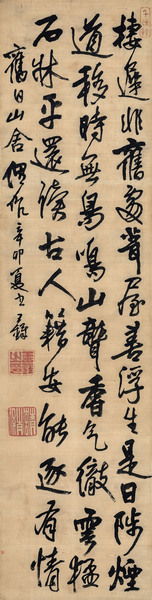 棲遲非舊處葺屋喜浮生是日陟煙
道移時無鳥鳴山聾香气徹雲猛
石牀平還讀古人籍安能逐有情
舊日山舍偶作辛卯夏王鐸